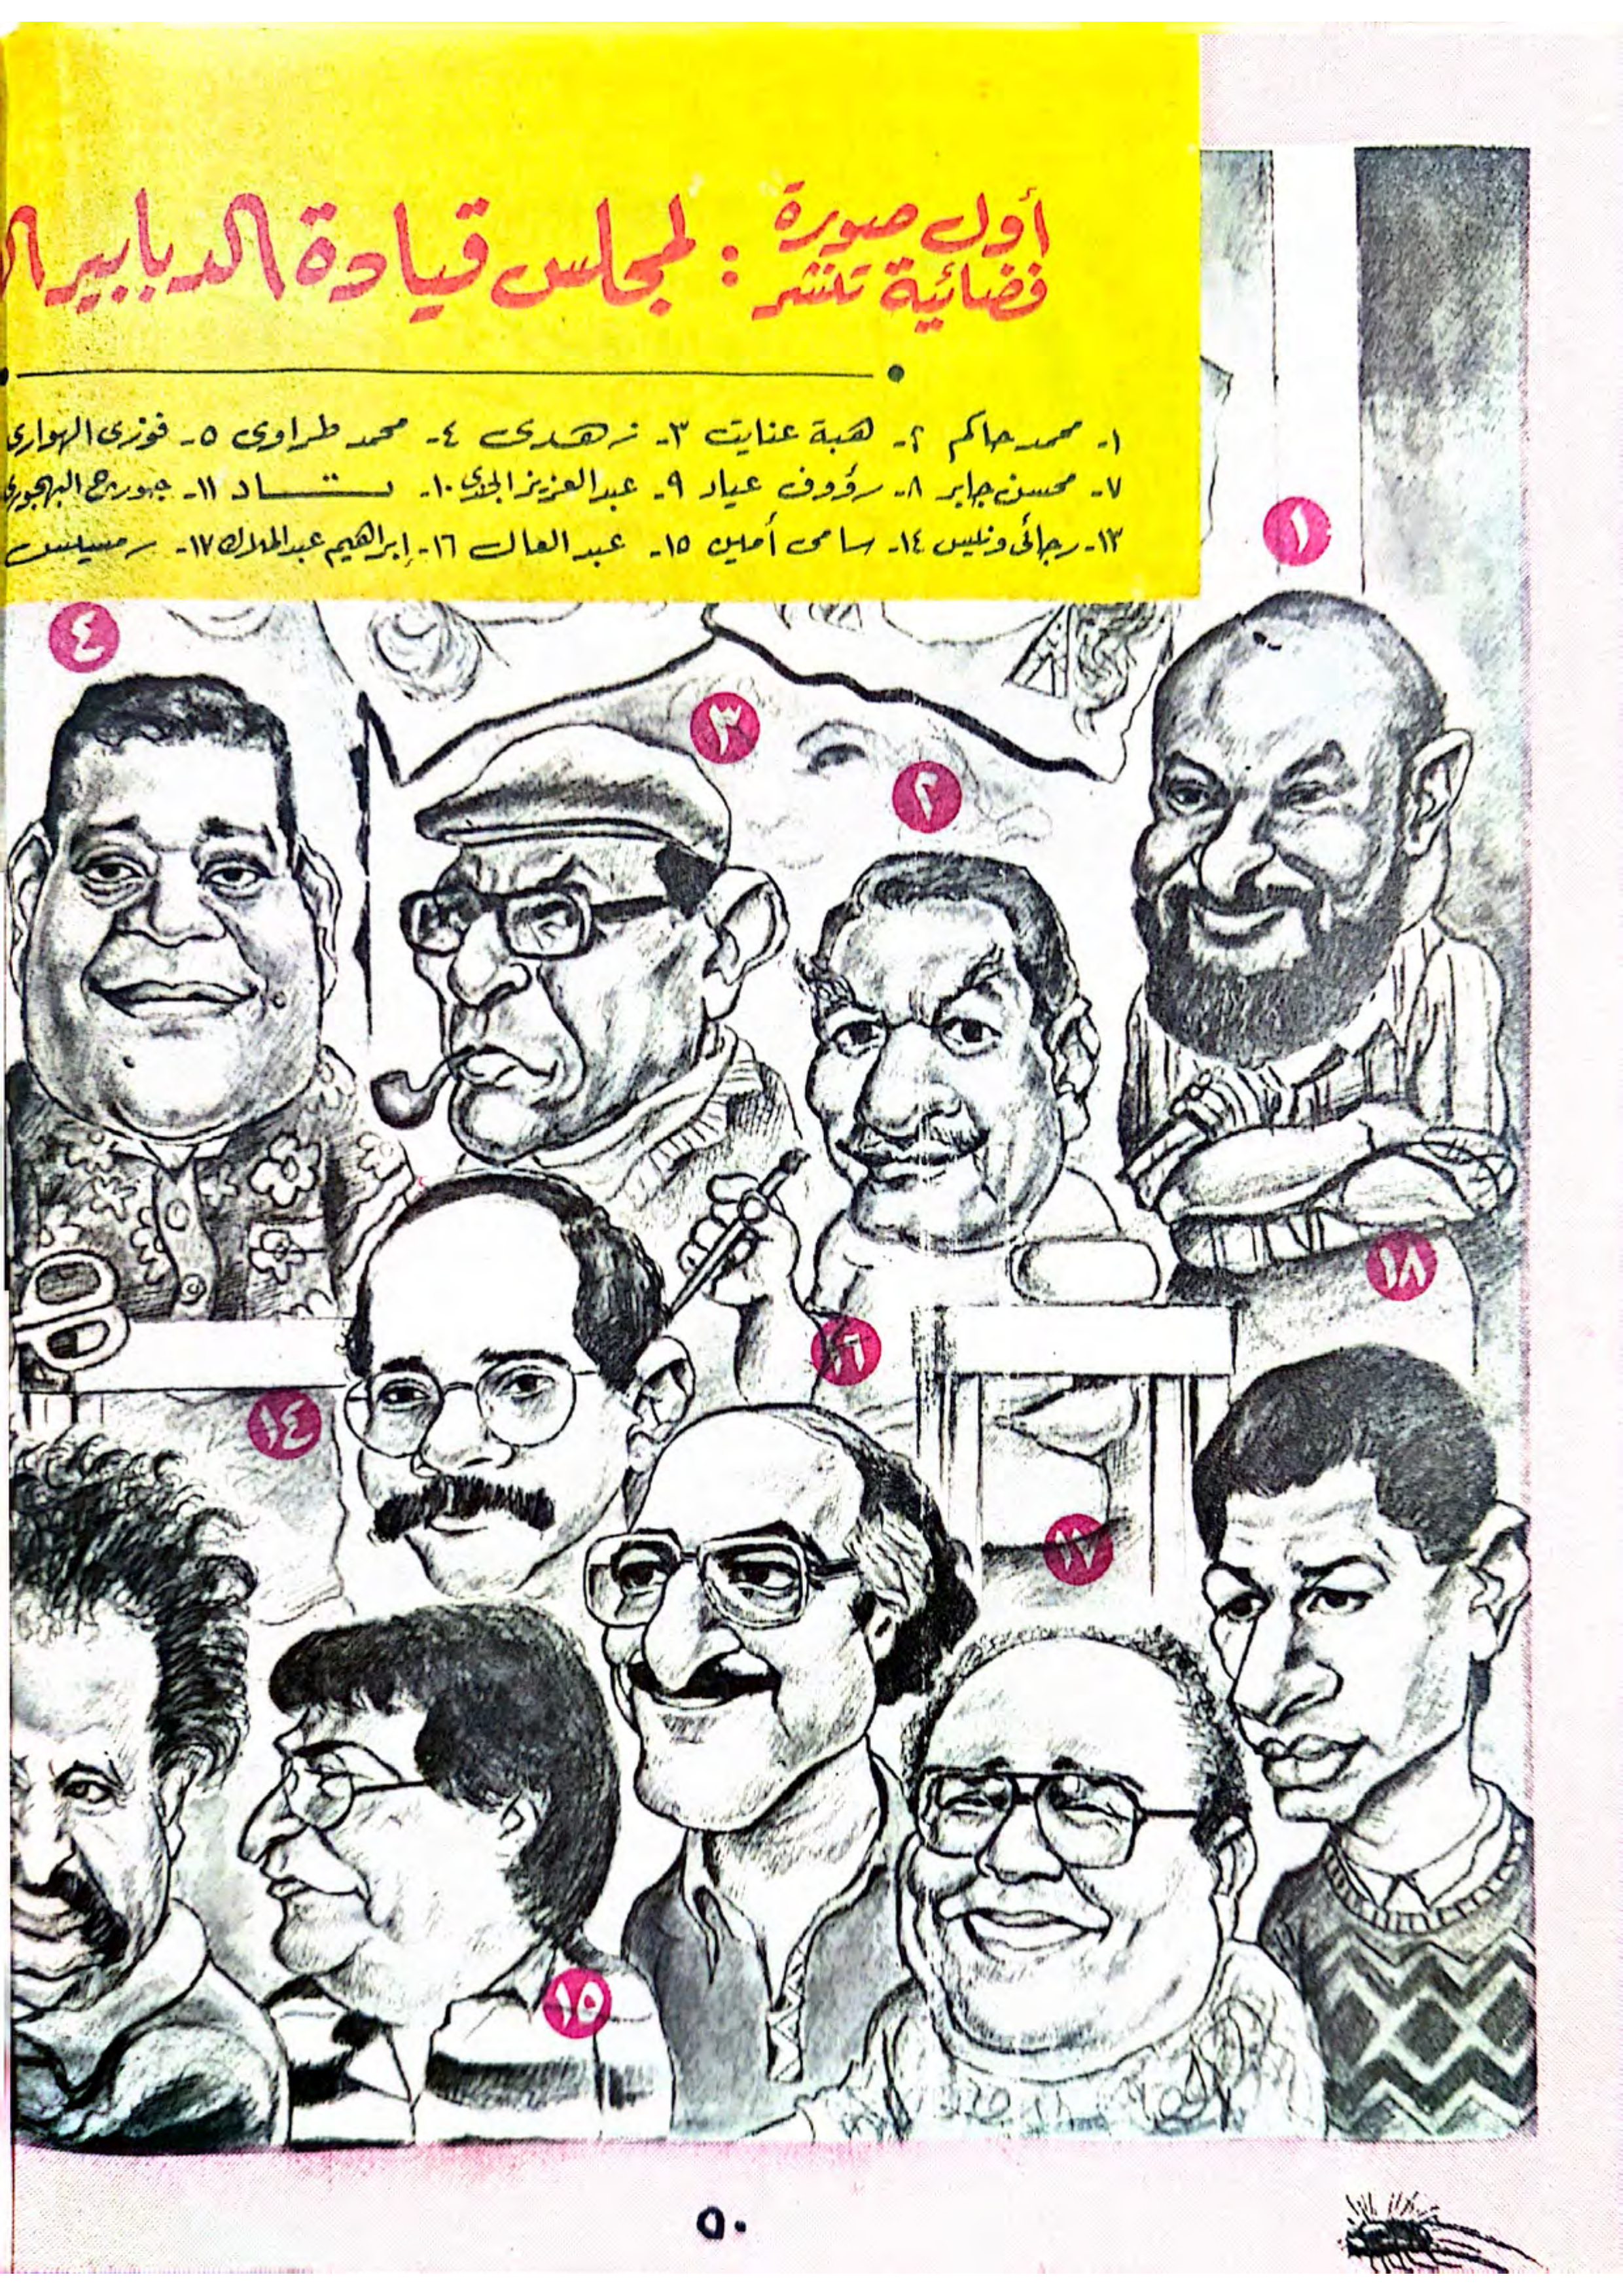 أول صورة
فضائية تنشر : لمجلس قيادة الدبابير ال
١- محمد حاكم ٢- هبة عنايت ٣- زهدى ٤- محمد طراوى ٥- فوزى الهوارى
٧- محسن جابر ٨- رؤوف عياد ٩- عبد العزيز الجندى ١٠- ١١- جورج البهجورى
١٣- رجائى ونيس ١٤- سامى أمين ١٥- عبد العال ١٦- إبراهيم عبد الملاك ١٧- رمسيس
١
٤
٣
٢
١٨
١٦
١٤
١٧
١٥
٥٠